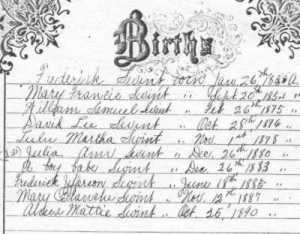 Births
Frederick Swint born Jany 26th
Mary Francis Swint " Sept 20th
William Samuel Swint " Feb 26th 1875
David Lee Swint " Oct 28th 1876
Martha Swint " Nov 1st 1878
Julia Ann Swint " Dec 26th 1880
A boy babe Swint " Dec 26th 1883
Frederick Warron Swint " June 18th 1885
Mary Blanche Swint " Nov. 12th 1887
Mattie Swint " Oct 25, 1890 "